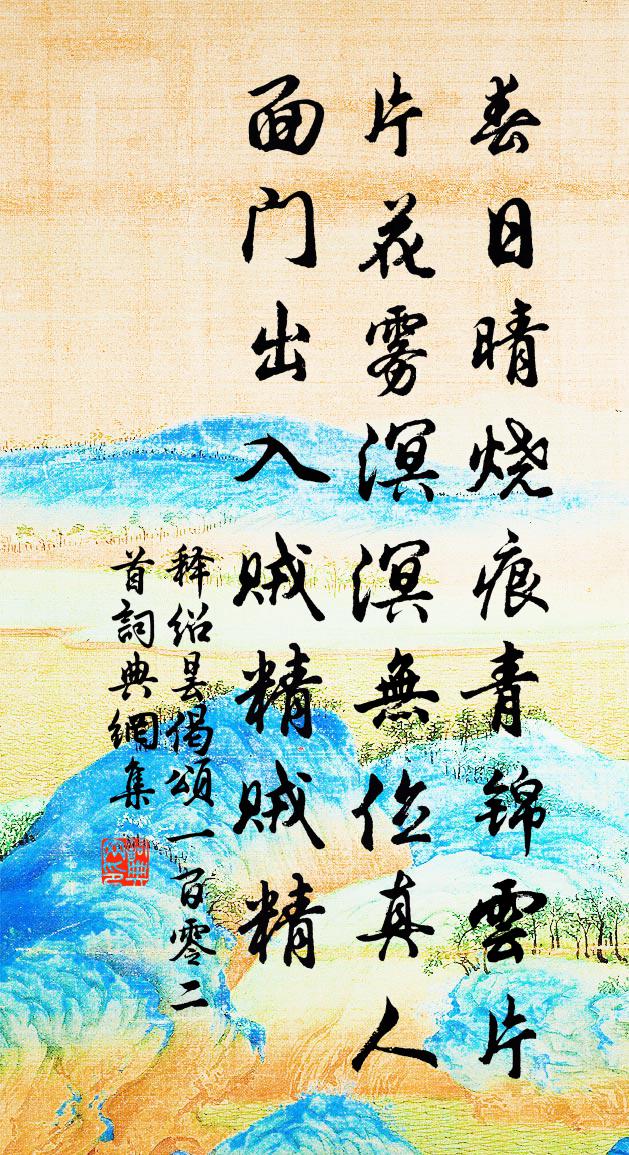 春日晴烧痕青锦雲片
片花雾溟溟無位真人
面门出入贼精贼精
释绍昙偈頌一百零二
首詞典網集